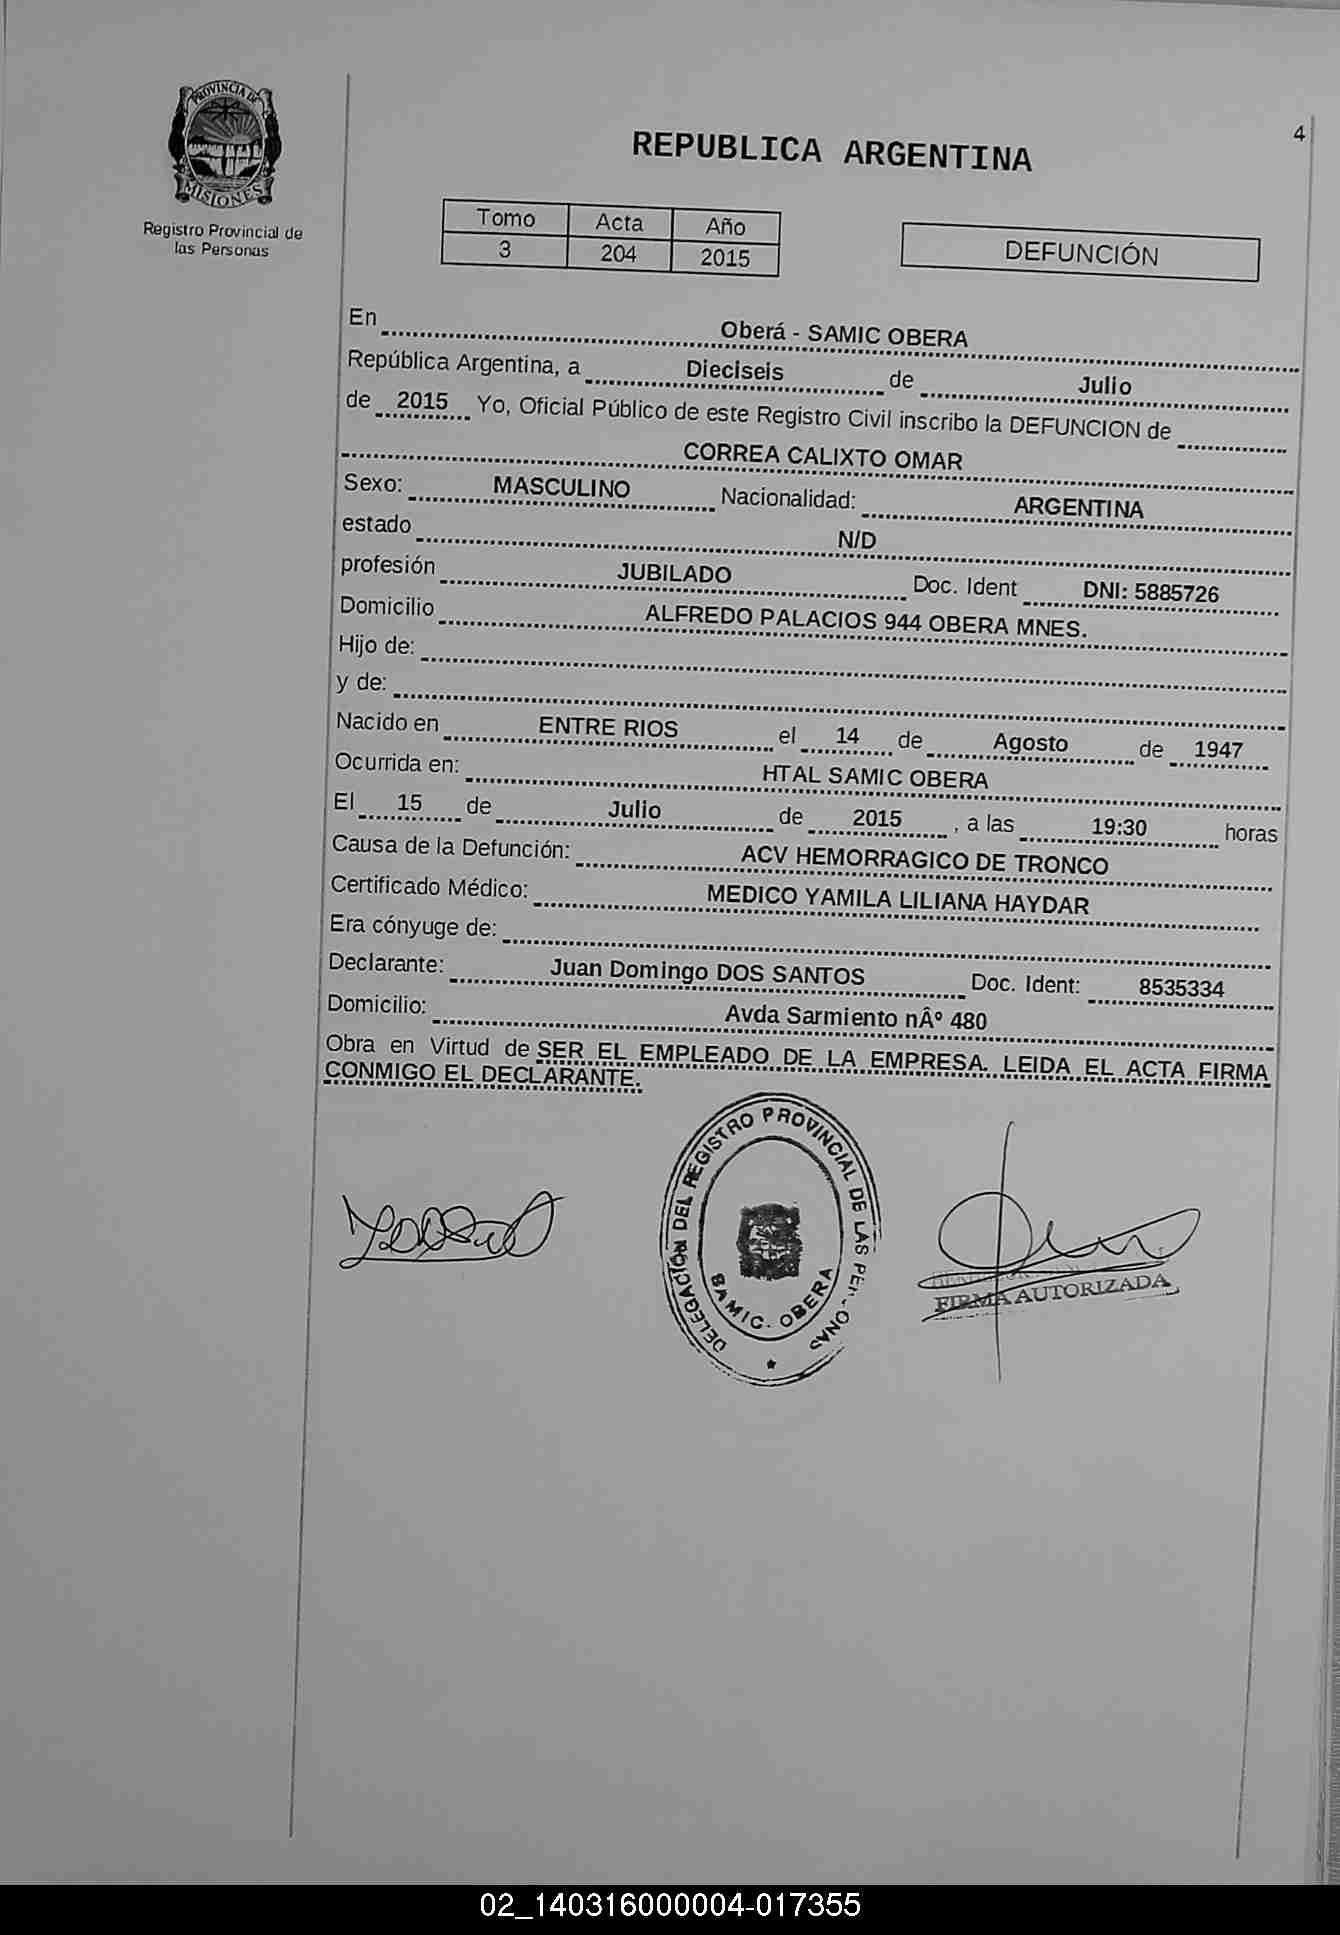 4
PROVINCIA DE
MISIONES
Registro Provincial de
las Personas
REPUBLICA ARGENTINA
Tomo Acta Año
3 204 2015
DEFUNCIÓN
En Oberá - SAMIC OBERA
República Argentina, a Dieciseis de Julio
de 2015 Yo, Oficial Público de este Registro Civil inscribo la DEFUNCION de
CORREA CALIXTO OMAR
Sexo: MASCULINO Nacionalidad: ARGENTINA
estado N/D
profesión JUBILADO Doc. Ident DNI: 5885726
Domicilio ALFREDO PALACIOS 944 OBERA MNES.
Hijo de:
y de:
Nacido en ENTRE RIOS el 14 de Agosto de 1947
Ocurrida en: HTAL SAMIC OBERA
El 15 de Julio de 2015 , a las 19:30 horas
Causa de la Defunción: ACV HEMORRAGICO DE TRONCO
Certificado Médico: MEDICO YAMILA LILIANA HAYDAR
Era cónyuge de:
Declarante: Juan Domingo DOS SANTOS Doc. Ident: 8535334
Domicilio: Avda Sarmiento nÂº 480
Obra en Virtud de SER EL EMPLEADO DE LA EMPRESA. LEIDA EL ACTA FIRMA
CONMIGO EL DECLARANTE.
DELEGACIÓN DEL REGISTRO PROVINCIAL DE LAS PERSONAS
SAMIC. OBERA
FIRMA AUTORIZADA
02_140316000004-017355